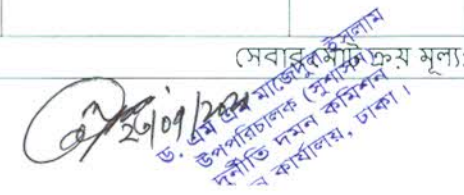 সেবার মোট ক্রয় মূল্য:
ড. এম এম মাজেদুল ইসলাম
উপপরিচালক (সুশাসন)
দুর্নীতি দমন কমিশন
ন কার্যালয়, ঢাকা।